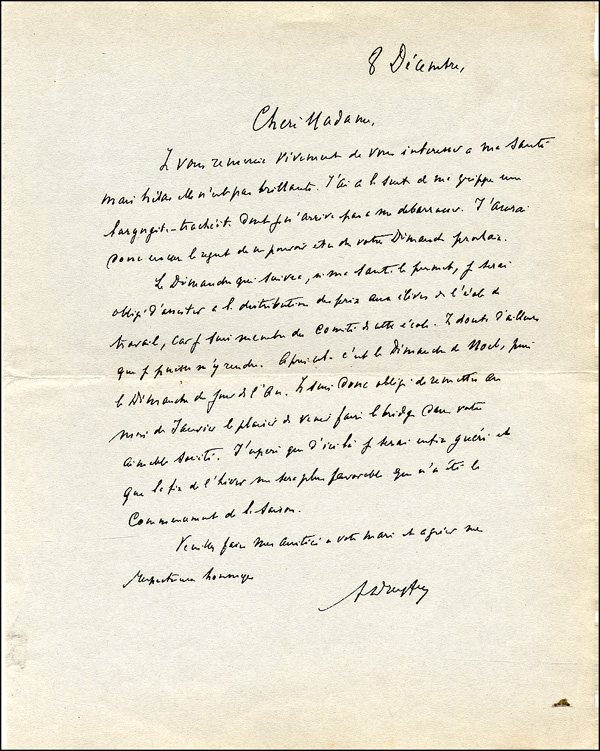 8 Décembre,
Chère Madame,
Je vous remercie vivement de vous interesser a ma santé
mais hélas elle n'est pas brillante. J'ai a la suite de ma grippe une
laryngite-trachéite dont je n'arrive pas a me debarrasser. J'aurai
donc encore le regret de ne pouvoir etre chez votre Dimanche prochain.
Le Dimanche qui suivra, si ma santé le permet, je serai
obligé d'assister a la distribution des prix aux élèves de l'école de
travail, car je suis membre du Comité de cette école. Je doute d'ailleurs
que je puisse m'y rendre. Après cela c'est le Dimanche de Noel, puis
le Dimanche du jour de l'An. Je suis donc obligé de remettre au
mois de Janvier le plaisir de venir faire le bridge dans votre
aimable société. J'espère que d'ici là je serai enfin guéri et
que la fin de l'hiver me sera plus favorable que n'a été le
Commencement de la saison.
Veuillez faire mes amitiés a votre mari et agréer mes
respectueux hommages